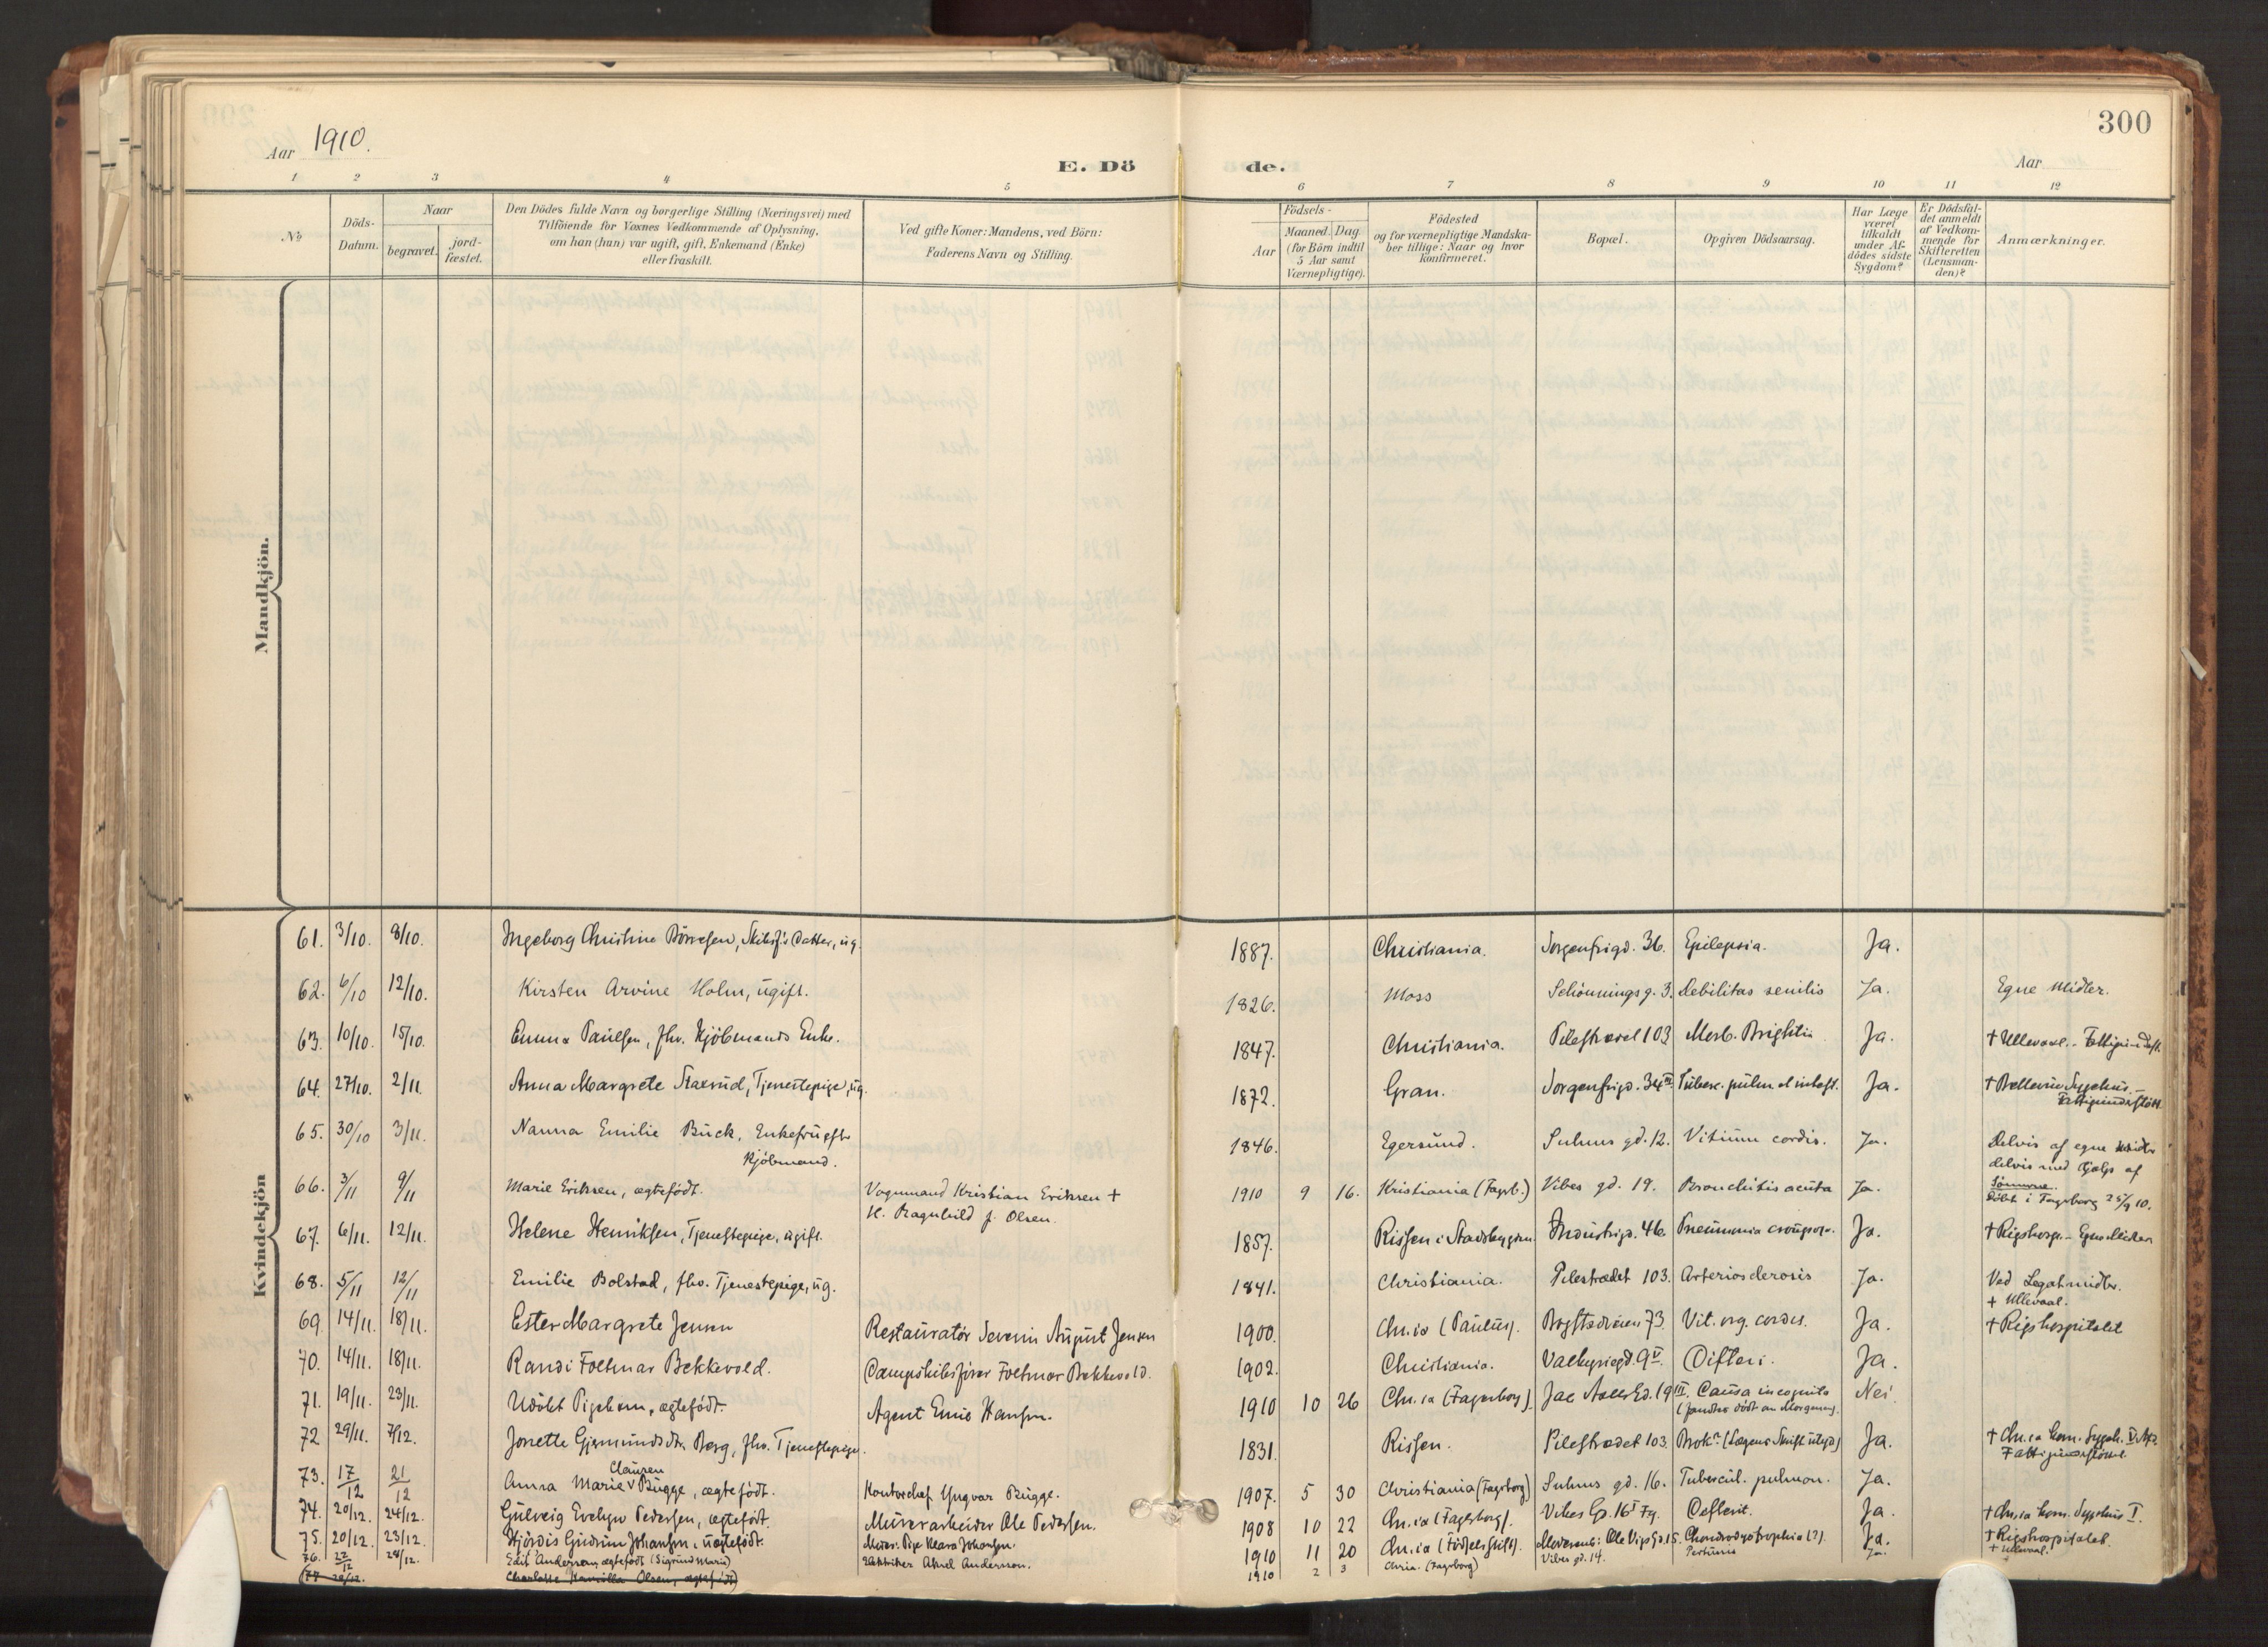 300
Aar 1910.
E. Dö de.
Aar
1 2 3 4 5 6 7 8 9 10 11 12
No.
Döds-Datum.
Naar
begravet.
jord-fæstet.
Den Dödes fulde Navn og borgerlige Stilling (Næringsvei) med
Tilföiende for Voxnes Vedkommende af Oplysning,
om han (hun) var ugift, gift, Enkemand (Enke)
eller fraskilt.
Ved gifte Koner: Mandens, ved Börn:
Faderens Navn og Stilling.
Födsels-
Aar
Maaned. Dag.
(for Börn indtil
5 Aar samt
Værnepligtige).
Födested
og for værnepligtige Mandska-
ber tillige: Naar og hvor
konfirmeret.
Bopæl.
Opgiven Dödsaarsag.
Har Læge
været
tilkaldt
under Af-
dödes sidste
Sygdom?
Er Dödsfal-
det anmeldt
af Vedkom-
mende for
Skifteretten
(Lensman-
den)?
Anmærkninger.
Mandkjön.
Kvindekjön
61. 3/10. 8/10. Ingeborg Christine Börresen, Skibsf's Datter, ug. 1887. Christiania. Sorgenfrigd. 36. Epilepsia. Ja.
62. 6/10 12/10. Kirsten Arvine Holm, ugift. 1826. Moss Schönningsg. 3. Debilitas senilis Ja. Egne Midler.
63. 10/10. 15/10. Emma Paulsen, fhv. Kjöbmands Enke. 1847. Christiania. Pilestrædet 103 Morb. Brightii Ja. + Ullevaal.
64. 27/10. 2/11. Anna Margrete Staxrud, Tjenestepige, ug. 1872. Gran. Sorgenfrigd. 34 III Tuberc. pulm. et intest. Ja. + Bellevue Sygehus.
65. 30/10 3/11. Nanna Emilie Buck, Enkefru efter 1846. Egersund. Suhms gd. 12. Vitium cordis. Ja. Delvis af egne Midler
Kjöbmand. delvis med Hjælp af
Sönnerne.
66. 3/11 9/11 Marie Eriksen, ægtefödt. Vognmand Kristian Eriksen + 1910 9 16. Kristiania (Fagerb.) Vibes gd. 19. Bronchitis acuta Ja. Döbt i Fagerborg 25/9 10.
H. Ragnhild f. Olsen.
67. 6/11. 12/11. Helene Henriksen, Tjenestepige, ugift. 1857. Rissen i Stadsbygden Industrigd. 46. Pneumonia crouposa. Ja. + Rigshosp. - Egne Midler
68. 5/11 12/11 Emilie Bolstad, fhv. Tjenestepige, ug. 1841. Christiania. Pilestrædet 103. Arteriosclerosis Ja. Ved Legatmidler.
+ Ullevaal.
69. 14/11. 18/11. Ester Margrete Jensen Restauratör Severin August Jensen 1900. Chr.ia (Paulus). Bogstadveien 73. Vit. org. cordis. Ja. + Rigshospitalet
70. 14/11. 18/11. Randi Foltmar Bekkevold. Dampskibsförer Foltmar Bekkevold. 1902. Christiania. Valkyriegd. 9 V. Difteri. Ja.
71. 19/11. 23/11. Udöbt Pigebarn, ægtefödt. Agent Emil Hansen. 1910 10 26 Chr.ia (Fagerborg) Jac Aalls Gd. 19 III. Causa incognita Nei
(fandtes död om Morgenen).
72 29/11. 7/12. Jonette Gjermundsdtr. Berg, fhv. Tjenestepige. 1831. Rissen. Pilestrædet 103. Brok? (Lægens Skrift utyd.) Ja. + Chr.ia kom. Sygeh.
Fattigunderstöttet.
73. 17/12 21/12 Anna Marie Clausen Bugge, ægtefödt. Kontorchef Yngvar Bugge. 1907. 5 30 Christiania (Fagerborg) Suhms gd. 16. Tubercul. pulmon. Ja.
74. 20/12. 24/12. Gulveig Evelyn Pedersen, ægtefödt. Murerarbeider Ole Pedersen. 1908 10 22 Chr.ia (Fagerborg). Vibes Gd. 16 I Difterit. Ja. + Chr.ia kom. Sygehus I.
75. 20/12. 23/12. Hjördis Gudrun Johansen, uægtefödt. Moder: Pige Klara Johansen. 1910 11 20 Chr.ia (Födselsstift). Moderens: Ole Vigs Gd. 15. Chondrodystrophia (?). Ja. + Rigshospitalet.
76. 22/12 28/12. Edit Anderson, ægtefödt (Sigrund Marie) Elektriker Aksel Anderson. 1910 2 3 Chria. (Fagerborg) Vibes gd. 14. Pertussis Ja. + Ullevaal.
(77 28/12. Charlotte Kamilla Olsen, ægtefödt)